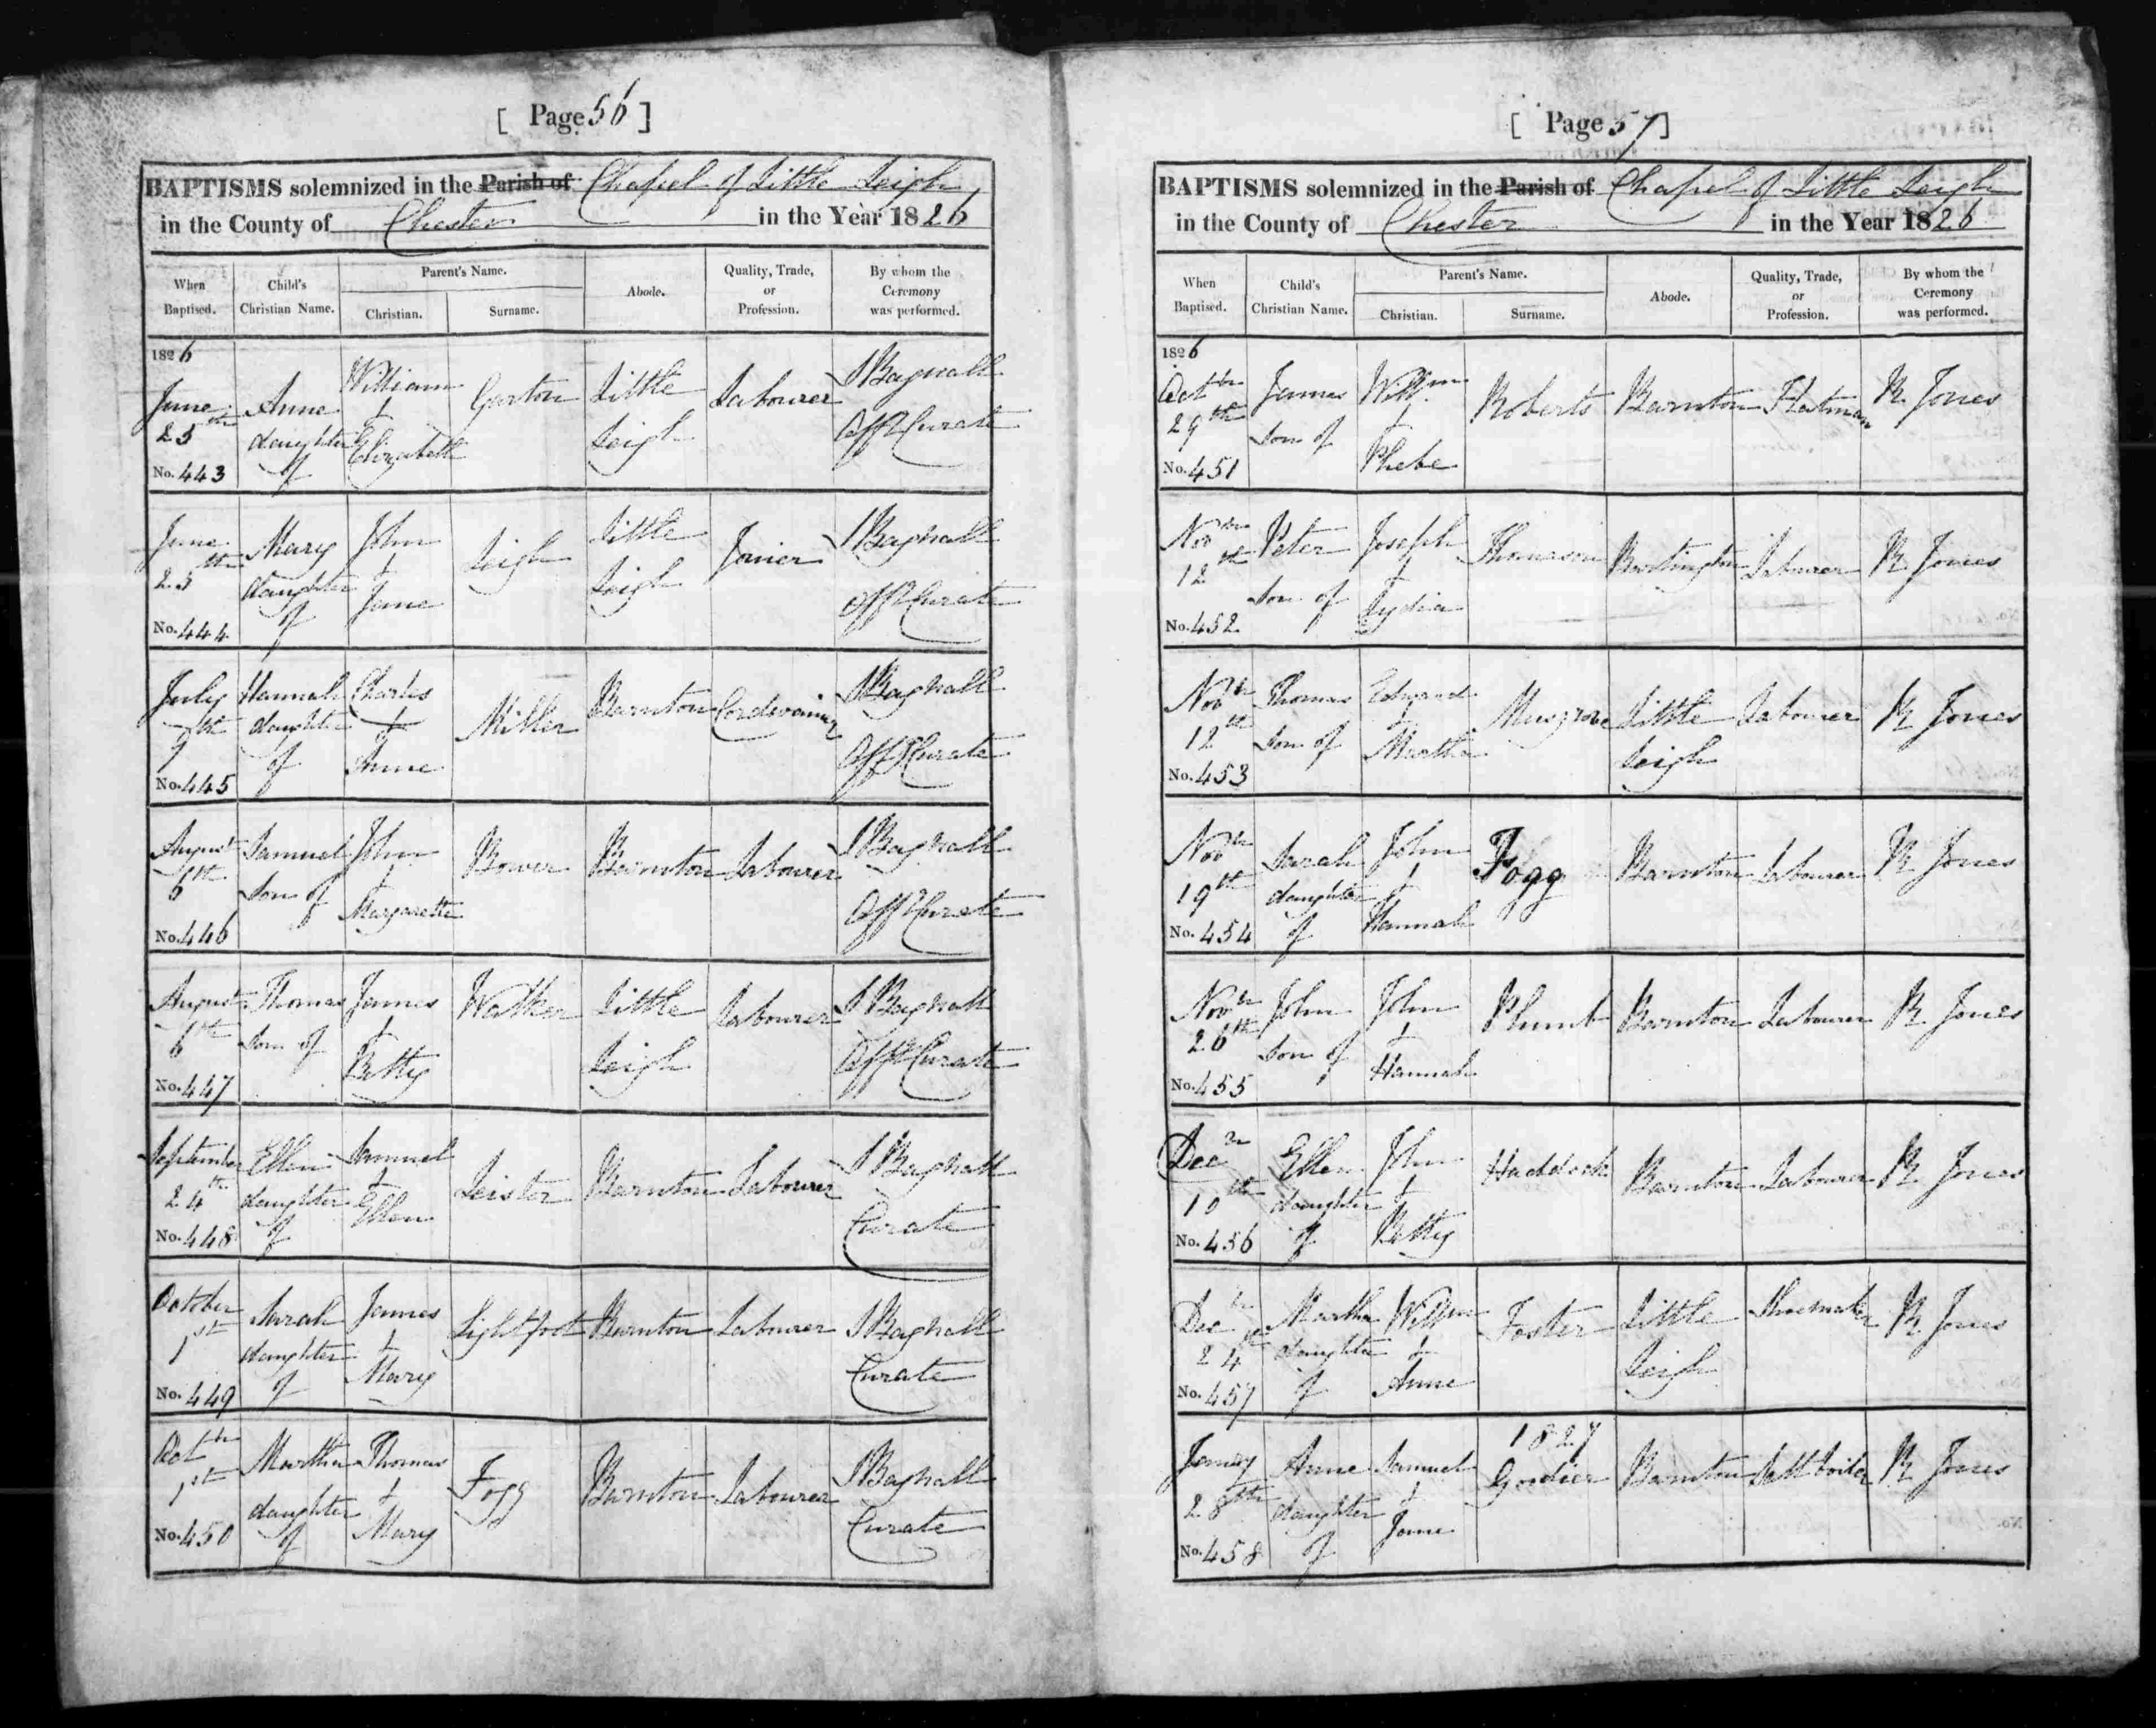 [ Page 56 ]
BAPTISMS solemnized in the Parish of Chapel of Little Leigh
in the County of Chester in the Year 1826
When Baptised. Child's Christian Name. Parent's Name. Christian. Surname. Abode. Quality, Trade, or Profession. By whom the Ceremony was performed.
1826
June 25th Anne daughter of William & Elizabeth Garton Little Leigh Labourer J Bagnall Offg Curate
No. 443
June 25th Mary daughter of John & Jane Leigh Little Leigh Joiner J Bagnall Offg Curate
No. 444
July Hannah daughter of Charles & Anne Miller Barnton Cordwainer J Bagnall Offg Curate
No. 445
August 6th Samuel Son of John & Margarette Bower Barnton Labourer J Bagnall Offg Curate
No. 446
August 6th Thomas Son of James & Betty Walker Little Leigh Labourer J Bagnall Offg Curate
No. 447
September 24th Ellen daughter of Samuel & Ellen Leister Barnton Labourer J Bagnall Curate
No. 448
October 1st Sarah daughter of James & Mary Lightfoot Barnton Labourer J Bagnall Curate
No. 449
Octbr 1st Martha daughter of Thomas & Mary Fogg Barnton Labourer J Bagnall Curate
No. 450
[ Page 57 ]
BAPTISMS solemnized in the Parish of Chapel of Little Leigh
in the County of Chester in the Year 1826
When Baptised. Child's Christian Name. Parent's Name. Christian. Surname. Abode. Quality, Trade, or Profession. By whom the Ceremony was performed.
1826
Octbr 29th James Son of Willm & Phebe Roberts Barnton Flatman R Jones
No. 451
Novbr 12th Peter Son of Joseph & Lydia Thomason Bartington Labourer R Jones
No. 452
Novbr 12th Thomas Son of Edward & Martha Musgrove Little Leigh Labourer R Jones
No. 453
Novbr 19th Sarah daughter of John & Hannah Fogg Barnton Labourer R Jones
No. 454
Novbr 26th John Son of John & Hannah Plumb Barnton Labourer R Jones
No. 455
Decbr 10th Ellen daughter of John & Betty Haddock Barnton Labourer R Jones
No. 456
Decbr 24th Martha daughter of Willm & Anne Foster Little Leigh Shoemaker R Jones
No. 457
1827
28th Anne daughter of Samuel & Jane Barnton Salt boiler R Jones
No. 458